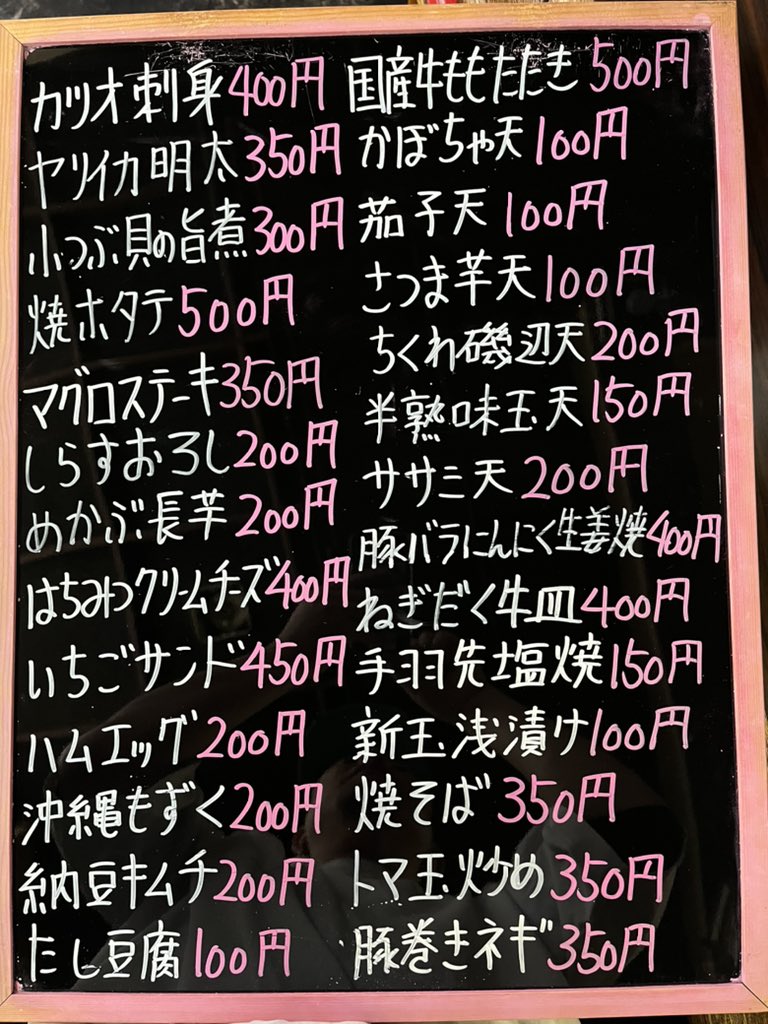 カツオ刺身400円
ヤリイカ明太350円
小つぶ貝の旨煮300円
焼ホタテ500円
マグロステーキ350円
しらすおろし200円
めかぶ長芋200円
はちみつクリームチーズ400円
いちごサンド450円
ハムエッグ200円
沖縄もずく200円
納豆キムチ200円
だし豆腐100円
国産牛ももたたき500円
かぼちゃ天100円
茄子天100円
さつま芋天100円
ちくわ磯辺天200円
半熟味玉天150円
ササミ天200円
豚バラにんにく生姜焼400円
ねぎだく牛皿400円
手羽先塩焼150円
新玉浅漬け100円
焼そば350円
トマ玉炒め350円
豚巻きネギ350円